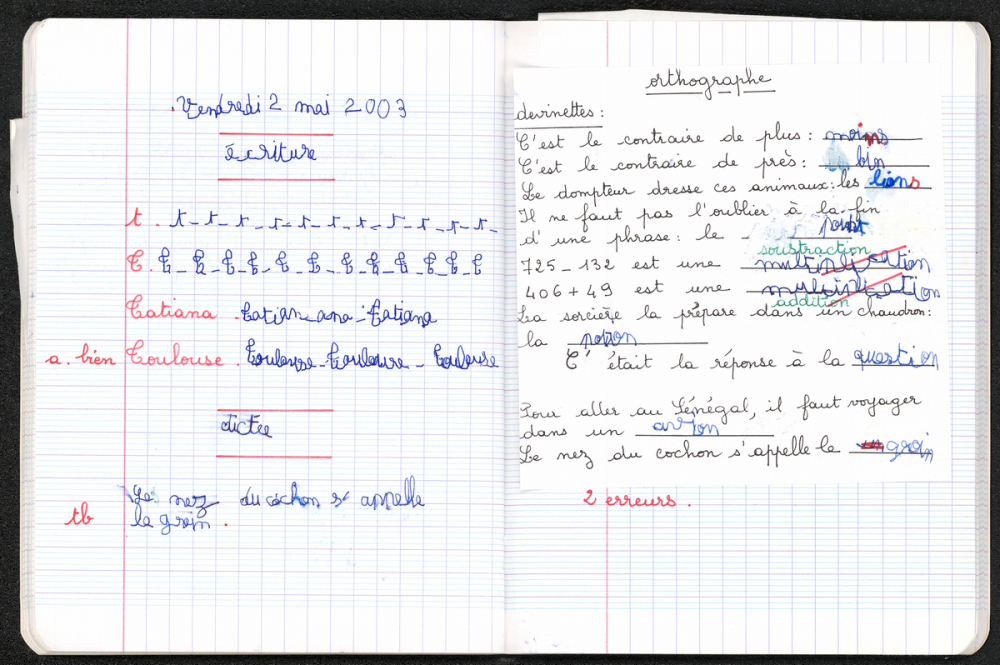 .Vendredi 2 mai 2003
écriture
t. t_ t_ t _ t_ t_ t_ t_ t_ t_ t_ t_ t_
T. T_ T_ T_ T_ T_ T_ T_ T_ T_ T_ T_ T
Tatiana . Tatian_ana_Tatiana
a. bien Toulouse. Toulouse_Toulouse_ Toulouse
dictée
Le nez du cochon s' appelle
tb le groin .
orthographe
devinettes :
C'est le contraire de plus : moins
C'est le contraire de près : loin
Le dompteur dresse ces animaux : les lions
Il ne faut pas l'oublier à la fin
d'une phrase : le point
soustraction
725 _ 132 est une multiplication
406 + 49 est une multiplication
addition
La sorcière la prépare dans un chaudron :
la potion
C' était la réponse à la question
Pour aller au Sénégal, il faut voyager
dans un avion
Le nez du cochon s'appelle le groin
2 erreurs .